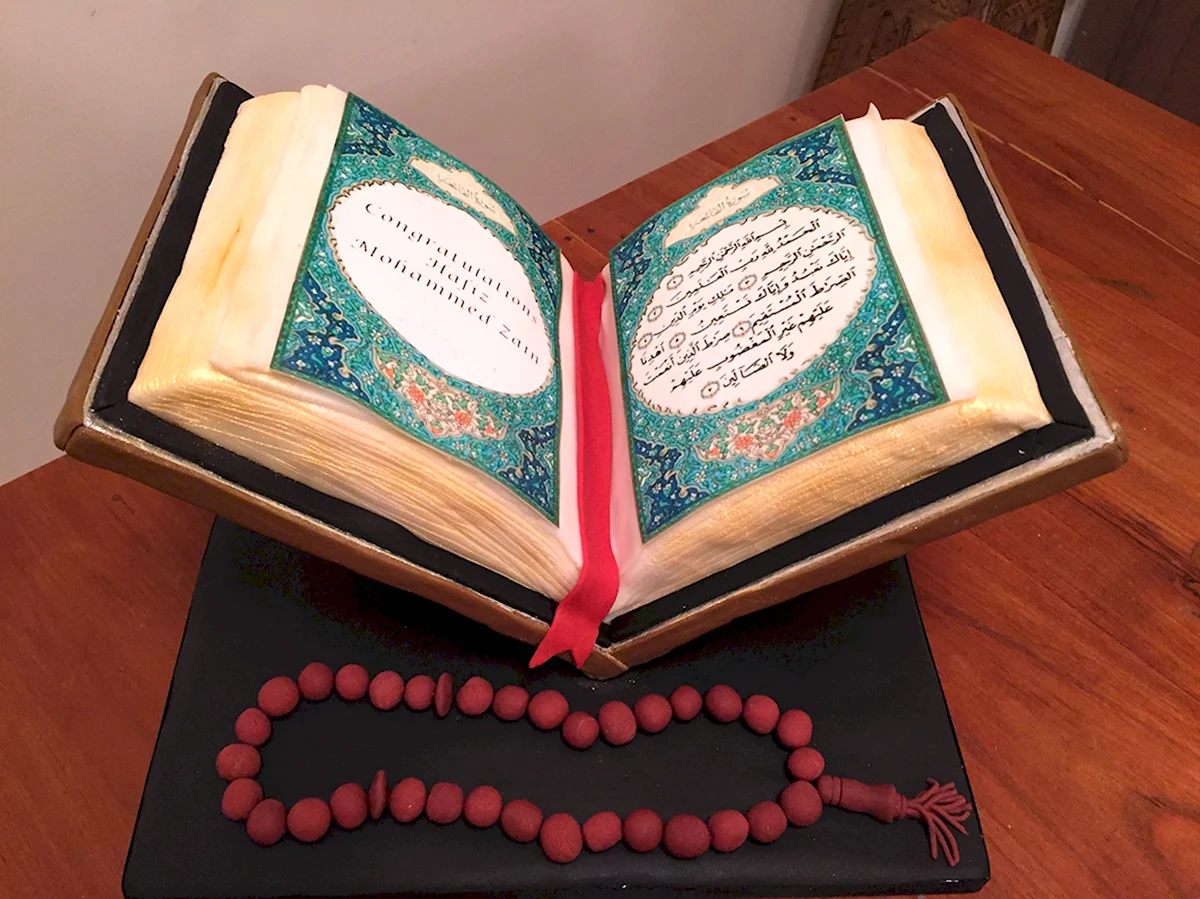 سورة الفاتحة
Congratulations
Hafiz
Mohammed Zain
سورة الفاتحة
بِسْمِ اللَّهِ الرَّحْمَٰنِ الرَّحِيمِ ۝
الْحَمْدُ لِلَّهِ رَبِّ الْعَالَمِينَ ۝
الرَّحْمَٰنِ الرَّحِيمِ ۝ مَالِكِ يَوْمِ الدِّينِ ۝
إِيَّاكَ نَعْبُدُ وَإِيَّاكَ نَسْتَعِينُ ۝ اهْدِنَا
الصِّرَاطَ الْمُسْتَقِيمَ ۝ صِرَاطَ الَّذِينَ أَنْعَمْتَ
عَلَيْهِمْ غَيْرِ الْمَغْضُوبِ عَلَيْهِمْ
وَلَا الضَّالِّينَ ۝